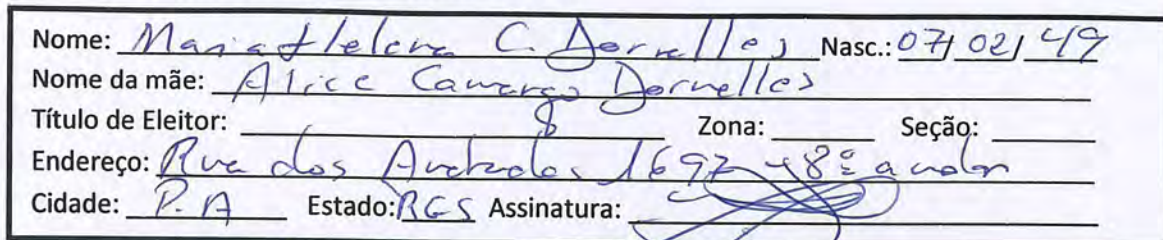 Nome: Maria Helena C. Dornelles Nasc.: 07/02/49
Nome da mãe: Alice Camargo Dornelles
Título de Eleitor: Zona: Seção:
Endereço: Rua dos Andradas 1697 8º andar
Cidade: P.A Estado: RGS Assinatura: